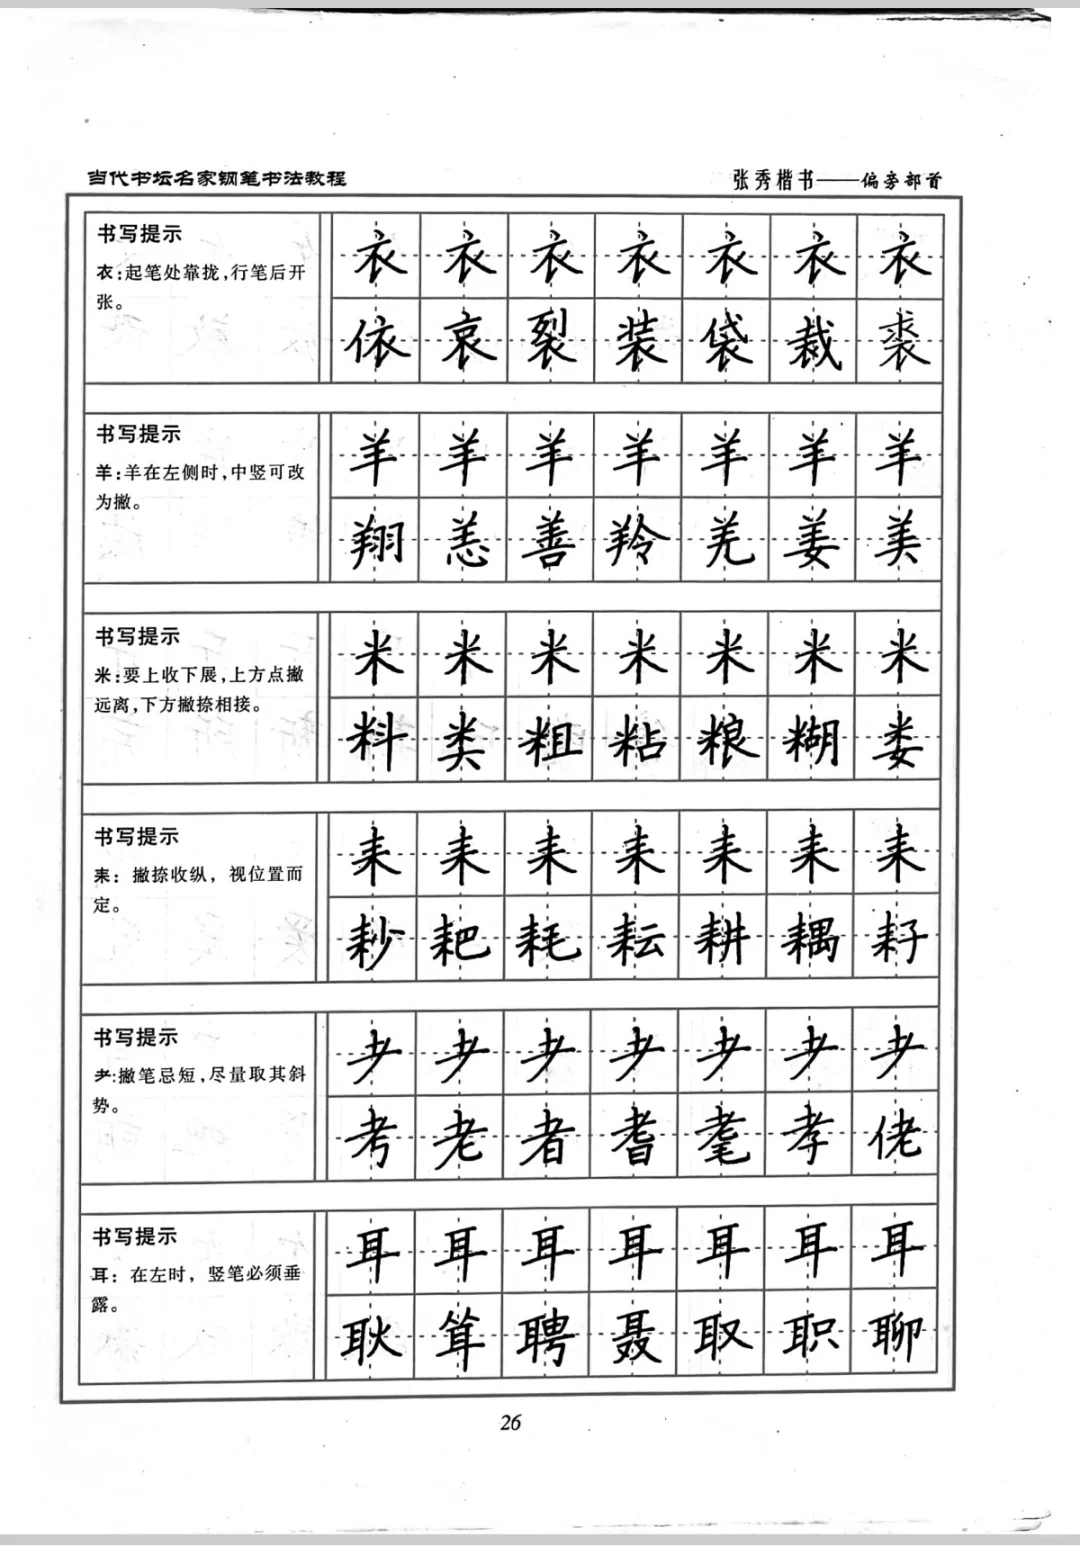 当代书坛名家钢笔书法教程
张秀楷书——偏旁部首
书写提示
衣:起笔处靠拢,行笔后开
张。
衣 衣 衣 衣 衣 衣 衣
依 哀 裂 装 袋 裁 裘
书写提示
羊:羊在左侧时,中竖可改
为撇。
羊 羊 羊 羊 羊 羊 羊
翔 恙 善 羚 羌 姜 美
书写提示
米:要上收下展,上方点撇
远离,下方撇捺相接。
米 米 米 米 米 米 米
料 类 粗 粘 粮 糊 娄
书写提示
耒: 撇捺收纵, 视位置而
定。
耒 耒 耒 耒 耒 耒 耒
耖 耙 耗 耘 耕 耦 耔
书写提示
耂:撇笔忌短,尽量取其斜
势。
耂 耂 耂 耂 耂 耂 耂
考 老 者 耆 耄 孝 佬
书写提示
耳: 在左时, 竖笔必须垂
露。
耳 耳 耳 耳 耳 耳 耳
耿 耸 聘 聂 取 职 聊
26